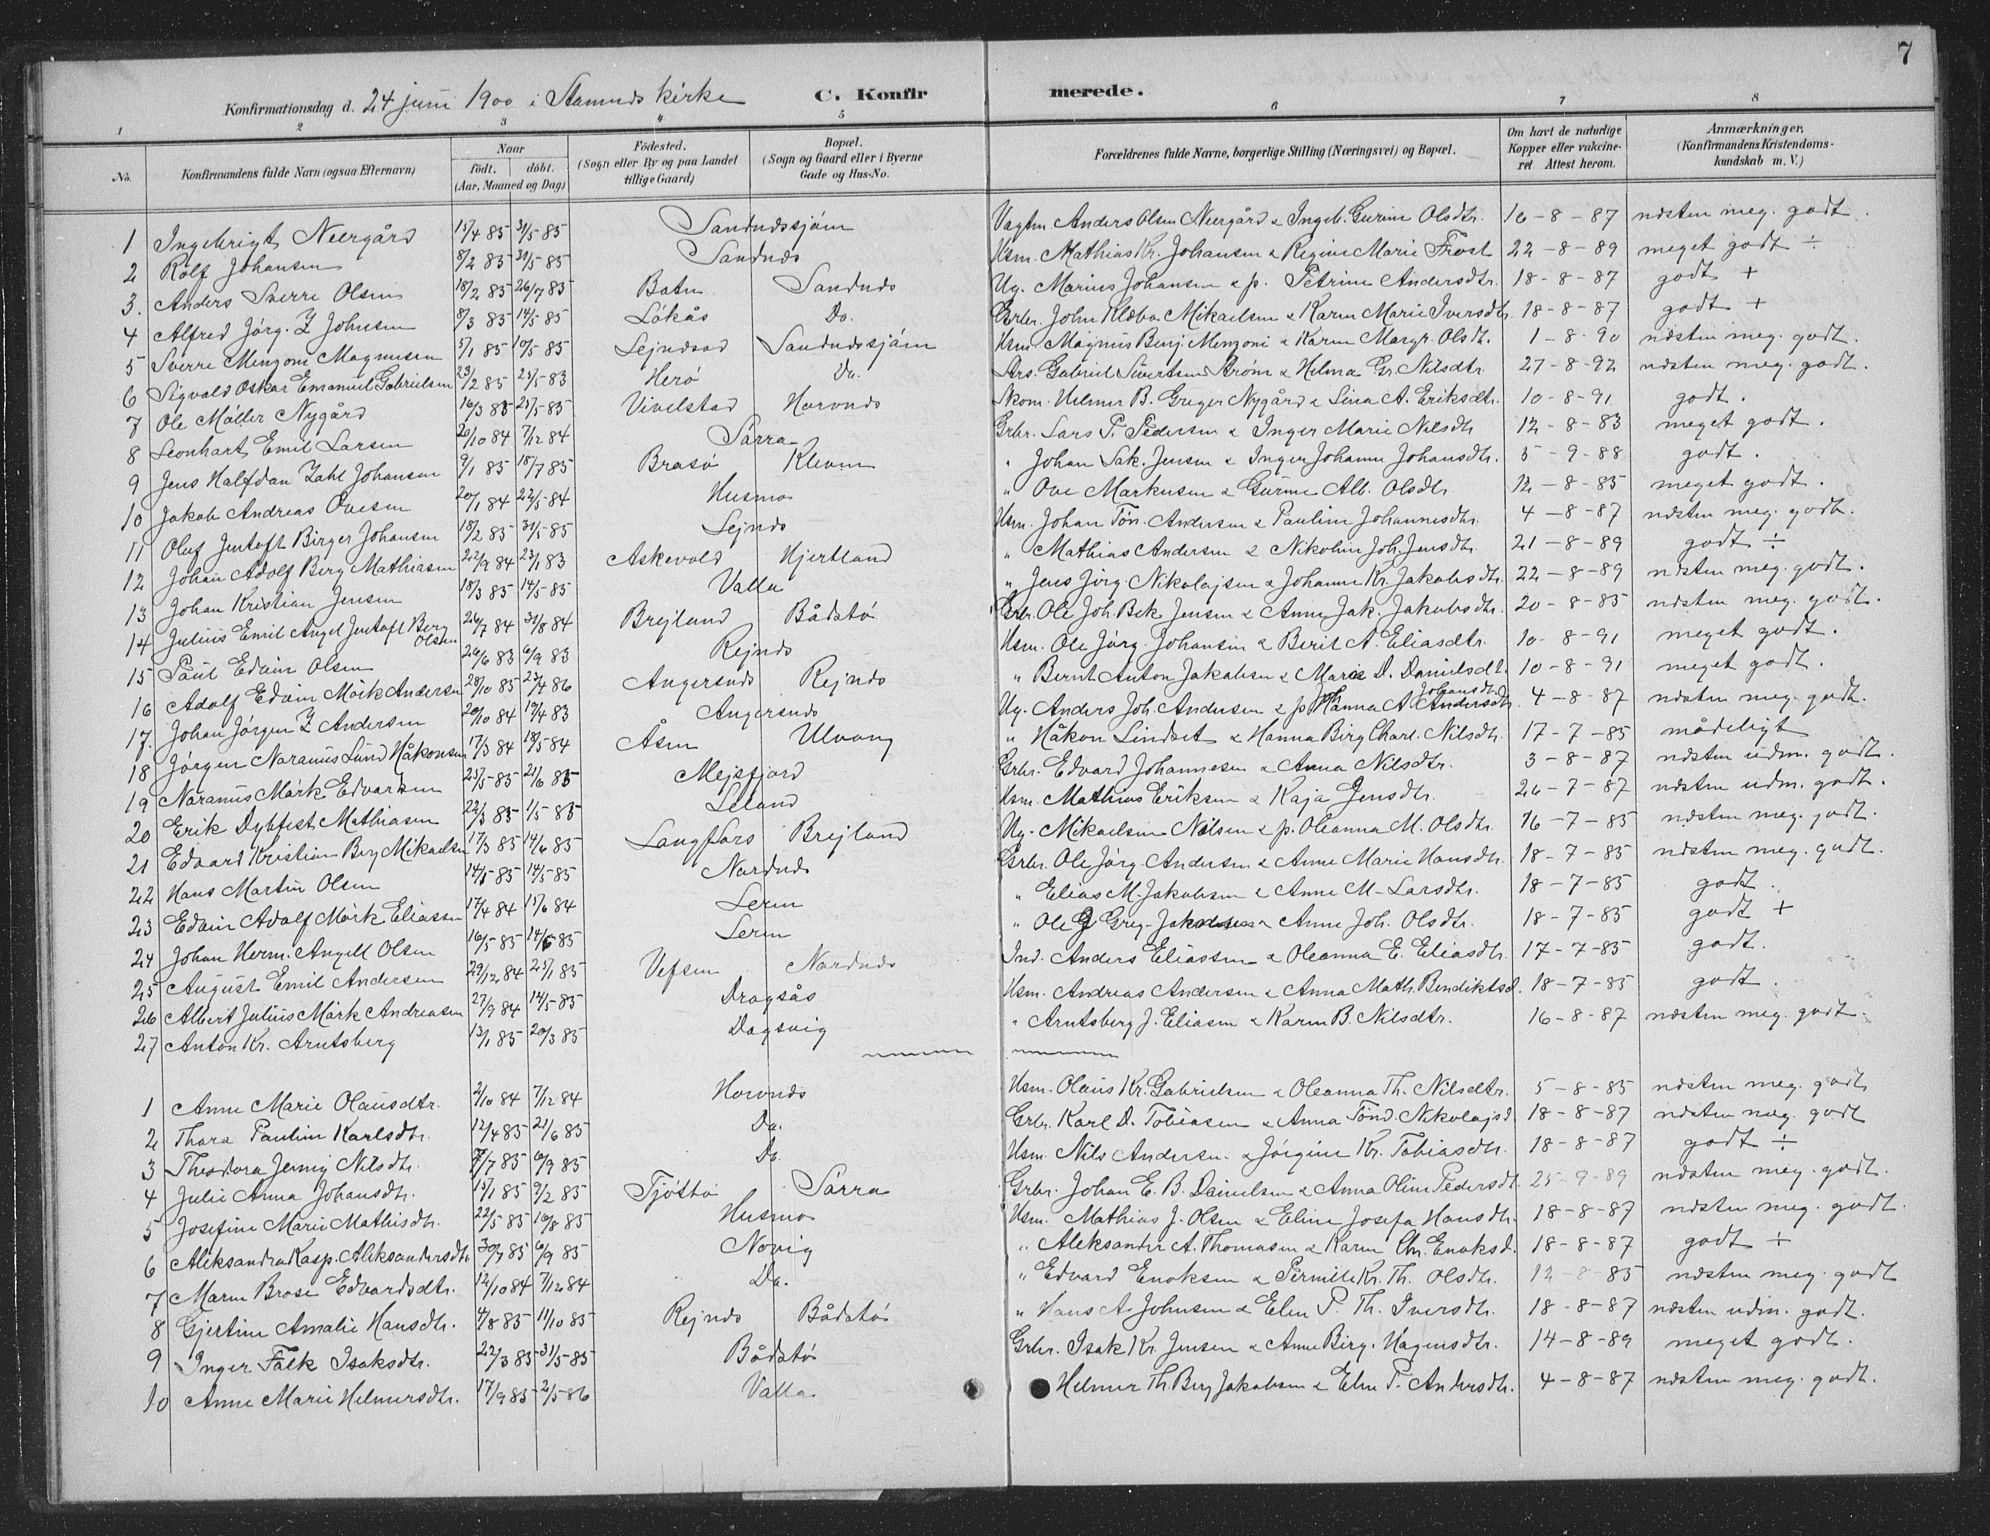 7
Konfirmationsdag d. 24 juni 1900 i Stamnæs kirke C. Konfirmerede.
1 2 3 4 5 6 7 8
No. Konfirmandens fulde Navn (ogsaa Efternavn) Naar født. døbt. (Aar, Maaned og Dag) Fødested. (Sogn eller By og paa Landet tillige Gaard) Bopæl. (Sogn og Gaard eller i Byerne Gade og Hus-No. Forældrenes fulde Navne, borgerlige Stilling (Næringsvei) og Bopæl. Om havt de naturlige Kopper eller vakcineret. Attest herom. Anmærkninger. (Konfirmandens Kristendomskundskab m. V.)
1 Ingebrigt Neergård 15/4 85 31/5 85 Sandnæssjøen Vagtm. Anders Olsen Neergård & Ingeb. Gurine Olsdtr. 16-8-87 næsten meg. godt.
2 Rolf Johansen 8/2 85 31/5 85 Sandnæs Hsm. Mathias Kr. Johansen & Regine Marie Frost 22-8-89 meget godt ÷
3. Anders Sverre Olsen 18/2 85 26/7 85 Botn Sandnæs Ug. Marius Johansen & p. Petrine Andersdtr. 18-8-87 godt +
4 Alfred Jørg. Z Johnsen 8/3 85 14/5 85 Løkås Do. Grbr. John Klæbo Mikaelsen & Karen Marie Iversdtr. 18-8-87 godt +
5 Sverre Menzoni Magnusen 5/1 85 10/5 85 Sandnæssjøen Hsm Magnus Benj Menzoni & Karen Margr. Olsdtr. 1-8-90 næsten meg. godt.
6 Sigvald Oskar Emanuel Gabrielsen 23/2 85 25/5 83 Herø Do. Gabriel Sivertsen Strøm & Helma Gr. Nilsdtr 27-8-92 næsten meg. godt.
7 Ole Møller Nygård 16/3 85 25/5 85 Vivelstad Hovnæs Skom. Helmer B. Greger Nygård & Lina A. Eriksdtr. 10-8-91 godt.
8 Leonhart Emil Larsen 20/10 84 7/12 84 Sørra Grbr. Lars P. Pedersen & Inger Marie Nilsdtr 12-8-83 meget godt.
9 Jens Halfdan Zahl Johansen 9/1 85 18/7 85 Brasø Kleven " Johan Sak. Jensen & Inger Johanne Johansdtr. 5-9-88 godt.
10 Jakob Andreas Ovesen 20/1 84 22/5 84 Husmo " Ove Markusen & Gurine Alb. Olsdtr 12-8-85 meget godt.
11 Oluf Jentoft Birger Johansen 18/2 85 31/5 85 Lejnæs Hsm. Johan Tøn. Andersen & Pauline Johannesdtr. 4-8-87 næsten meg. godt.
12 Johan Adolf Berg Mathiasen 22/9 84 23/1 83 Askevold Hjertland " Mathias Andersen & Nikoline Joh. Jensdtr 21-8-89 godt ÷
13 Johan Kristian Jensen 18/3 85 14/5 85 Valla " Jens Jørg. Nikolajsen & Johanne Kr. Jakobsdtr. 22-8-89 næsten meg. godt.
14 Julius Emil Angel Jentoft Berg Olsen 26/7 84 31/8 84 Brejland Bådstø Grbr. Ole Joh Bek Jensen & Anne Jak. Jakobsdtr. 20-8-85 næsten meg. godt.
15 Paul Edvin Olsen 26/6 83 6/9 83 Rejnæs Hsm. Ole Jørg. Johansen & Berit A. Eliasdtr. 10-8-91 meget godt.
16 Adolf Edvin Mørk Andersen 28/10 85 23/4 86 Angersnæs Rejnæs " Bernt Anton Jakobsen & Maria D. Danielsdtr. 10-8-91 meget godt.
17. Johan Jørgen Z Andersen 20/10 84 19/4 83 Angersnæs Ug. Anders Joh. Andersen & p. Hanna A. Johansdtr. Andersdtr. 4-8-87 næsten meg. godt.
18 Jørgen Naranus Lund Håkonsen 17/3 84 18/5 84 Åsen Ulvang " Håkon Lindset & Hanna Birg Charl. Nilsdtr. 17-7-85 mådeligt
19 Naranus Mørk Edvardsen 25/5 85 21/6 85 Mejsfjord Grbr. Edvard Johannesen & Anna Nilsdtr. 3-8-87 næsten udm. godt.
20 Erik Dybfest Mathiasen 22/3 85 1/5 85 Leland Hsm. Mathias Eriksen & Kaja Jensdtr. 26-7-87 næsten udm. godt.
21 Edvard Kristian Berg Mikaelsen 17/3 85 14/6 85 Langfors Brejland Ug. Mikaelsen Nilsen & p. Oleanna M. Olsdtr. 16-7-85 næsten meg. godt.
22 Hans Martin Olsen 14/1 85 14/5 85 Nordnæs Grbr. Ole Jørg. Andersen & Anne Marie Hansdtr. 18-7-85 næsten meg. godt.
23 Edvin Adolf Mørk Eliassen 17/4 84 15/6 84 Leren " Elias M. Jakobsen & Anne M. Larsdtr. 18-7-85 godt.
24 Johan Herm. Angell Olsen 16/5 85 14/6 85 Leren " Ole G Greg. Jakobsen & Anne Joh. Olsdtr. 18-7-85 godt +
25 August Emil Andersen 29/12 84 25/1 85 Vefsen Nordnæs Ind. Anders Eliassen & Oleanna E. Eliasdtr. 17-7-85 godt.
26 Albert Julius Mørk Andreasen 27/9 84 14/5 85 Dragsås Hsm. Andreas Andersen & Anna Math. Bendiktsd. 18-7-85 godt.
27 Anton Kr. Arntsberg 13/1 85 20/3 85 Dagsvig " Arntsberg J. Eliasen & Karen B. Nilsdtr. 16-8-87 næsten meg. godt.
1 Anne Marie Olausdtr. 2/10 84 7/12 84 Hovnæs Hsm. Olaus Kr. Gabrielsen & Oleanna Th. Nilsdtr. 5-8-85 næsten meg. godt
2 Thora Pauline Karlsdtr. 12/4 85 21/6 85 Do. Grbr. Karl D. Tobiasen & Anna Tønd. Nikolajsd. 18-8-87 næsten meg. godt
3 Theodora Jenny Nilsdtr. 7/7 85 6/9 85 Do. Hsm. Nils Andersen. & Jørgine Kr. Tobiasdtr. 18-8-87 godt ÷
4 Julie Anna Johansdtr. 15/1 85 9/2 85 Tjøttø Sørra Grbr. Johan E. B. Danielsen & Anna Oline Pedersdtr. 25-9-89 næsten meg. godt.
5 Josefine Marie Mathisdtr. 22/5 85 16/8 85 Husmo Hsm. Mathias J. Olsen & Eline Josefa Hansdtr. 18-8-87 næsten meg. godt.
6 Aleksandra Kasp. Aleksandersdtr. 30/7 85 6/9 85 Novig " Aleksander A. Thomasen & Karen Chr. Enoksd. 18-8-87 godt +
7 Maren Brose Edvardsdtr. 12/10 84 7/12 84 Do. " Edvard Enoksen & Pernille Kr. Th. Olsdtr. 12-8-85 næsten meg. godt
8 Gjertine Amalie Hansdtr. 4/8 85 11/10 85 Rejnæs Bådstø " Hans A. Johnsen & Elen P. Th. Iversdtr. 18-8-87 næsten udm. godt.
9 Inger Falk Isaksdtr. 22/3 85 31/5 85 Bådstø Grbr. Isak Kr. Jensen & Anne Birg. Hagensdtr. 14-8-89 meget godt.
10 Anne Marie Helmersdtr. 17/9 85 2/5 86 Valla. Helmer Th. Berg Jakobsen & Elen P. Andersdtr. 4-8-87 næsten meg. godt.